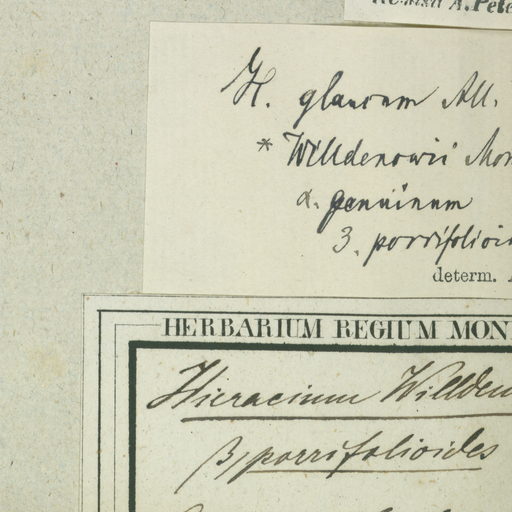 A. Pete
H. glaucum All.
* Willdenowii Mon
α. genuinum
3. porrifolioi
determ.
HERBARIUM REGIUM MON
Hieracium Willden
β) porrifolioides